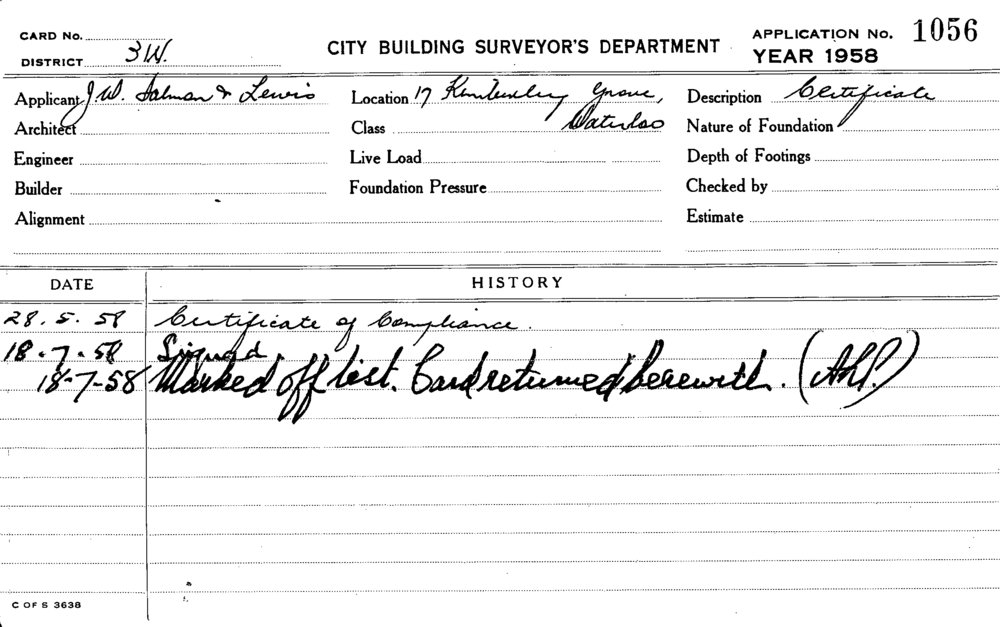 CARD No. APPLICATION No. 1056
DISTRICT 3W. CITY BUILDING SURVEYOR'S DEPARTMENT YEAR 1958
Applicant J.W. Salman & Lewis Location 17 Kimberley Grove, Description Certificate
Architect Class Waterloo Nature of Foundation
Engineer Live Load Depth of Footings
Builder Foundation Pressure Checked by
Alignment Estimate
DATE HISTORY
28.5.58 Certificate of Compliance.
18.7.58 Signed
18-7-58 Marked off list. Card returned herewith.
C OF S 3638